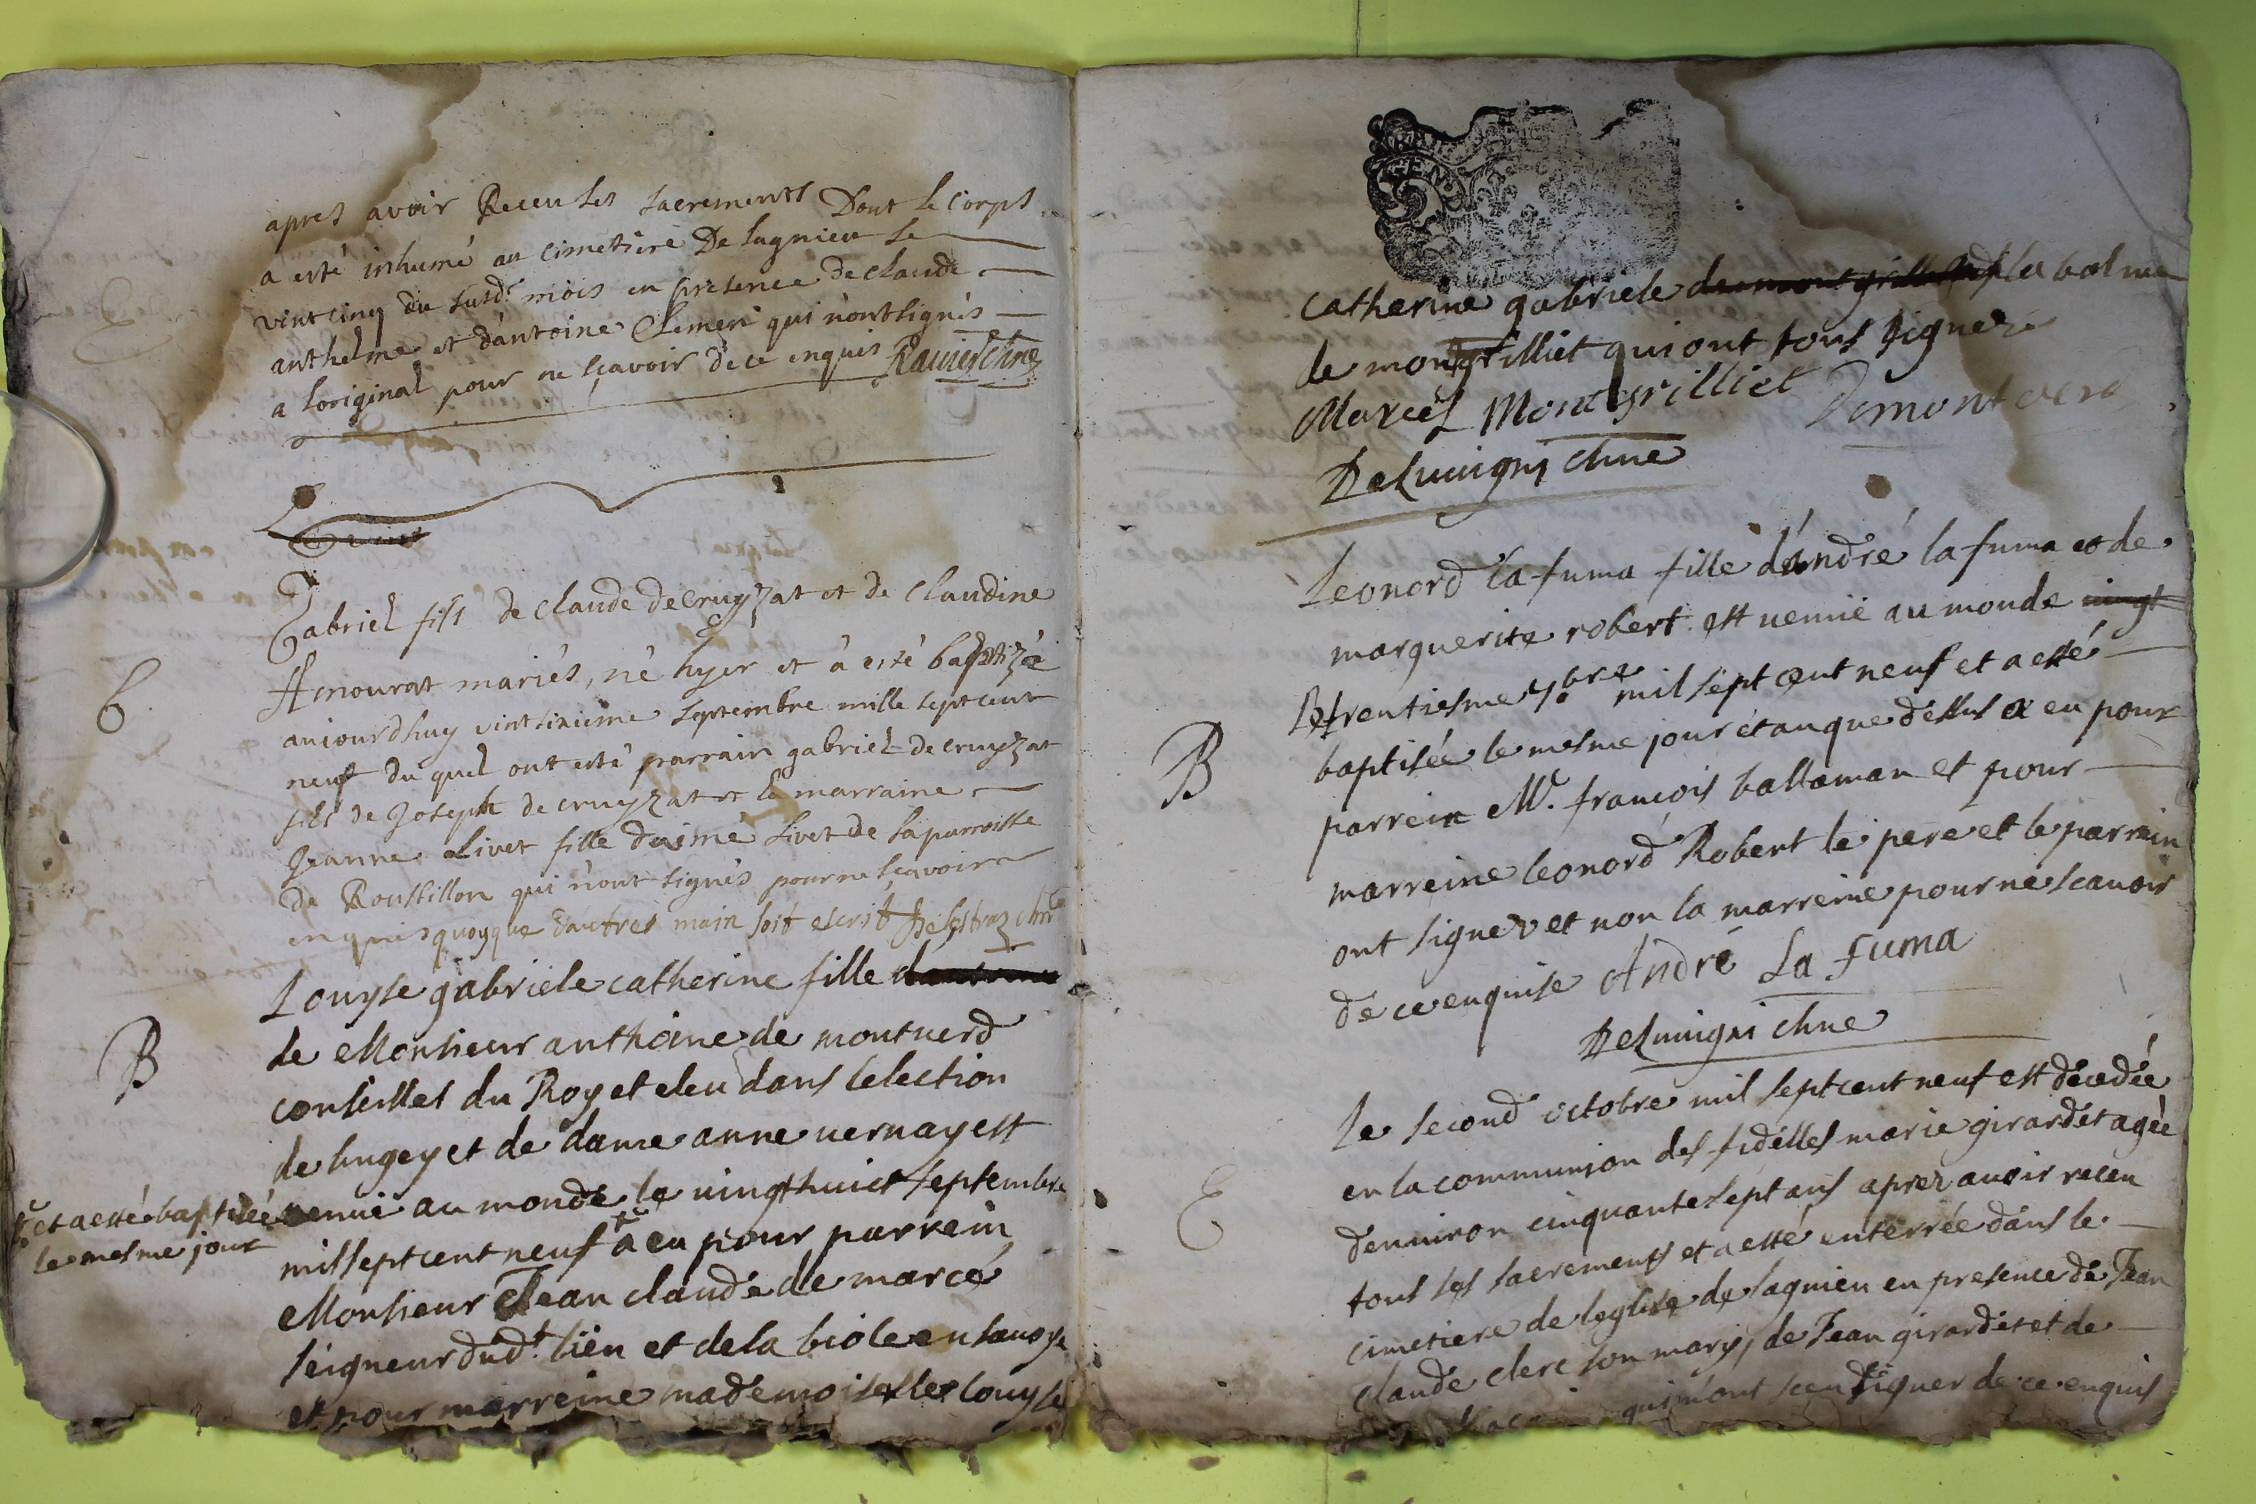 apres avoir Receu les sacrements Dont le corps
a esté inhumé au cimetiere De lagnieu le
vint cinq du susd.t mois en presence de claude
anthelme et d'antoine Clemeri qui n'ont signés
a loriginal pour ne sçavoir de ce enquis Ravier chne
Gabriel fils de claude decruyzat et de claudine
B
Amourat mariés, né hyer et à esté baptizé
aujourdhuy vintsixieme septembre mille sept cent
neuf du quel ont esté parrain gabriel decruyzat
fils de Joseph de cruyzat et la marraine
Jeanne Livet fille daimé Livet de la parroisse
de Roussillon qui n'ont signés pour ne sçavoir
enquis quoyque d'autres main soit escrit
Louyse gabriele catherine fille
B
de Monsieur anthoine de montverd
conseiller du Roy et eleu dans lelection
de bugey et de dame anne vernay est
et a esté baptisée venüe au monde le vingthuict septembre
le mesme jour
mil sept cent neuf a eu pour parrein
Monsieur Jean claude de marcé
seigneur dud.t lieu et de la biole en savoye
et pour marreine mademoiselle louyse
catherine gabriele la balme
de montgrilliet qui ont tous signez
Marcel Montgrilliet Demontverd
Delunigni chne
Leonord la fuma fille d'andré la fuma et de
marguerite robert est venüe au monde vingt
Le trentiesme 7.bre mil sept cent neuf et a esté
B
baptisée le mesme jour et an que dessus a eu pour
parrein Mr. françois ballaman et pour
marreine leonord Robert le pere et le parrein
ont signez et non la marreine pour ne scavoir
de ce enquise André La fuma
Delunigni chne
Le second octobre mil sept cent neuf est decedée
en la communion des fidelles marie girardet agée
E
denviron cinquante sept ans aprez avoir receu
tous les sacrements et a esté enterrée dans le
cimetiere de leglise de lagnieu en presence de Jean
claude clerc son mary, de Jean girardet et de
qui n'ont sceu signer de ce enquis